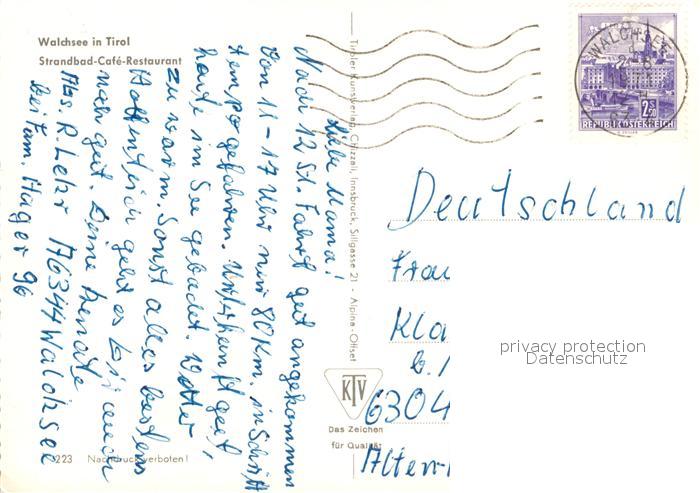 Walchsee in Tirol
Strandbad-Café-Restaurant
Liebe Mama!
Nach 12 St. Fahrt gut angekommen
Von 11 - 17 Uhr nur 80 Km. in Schritt
tempo gefahren. Unterkunft gut,
heute in See gebadet. Wetter
zu warm. Sonst alles bestens
Hoffentlich geht es Dir auch
noch gut. Deine Renate
Abs. R. Letzr A6344 Walchsee
bei Fam. Mager 96
223 Nachdruck verboten!
Tiroler Kunstverlag Chizzali, Innsbruck, Sillgasse 21 - Alpina-Offset
KTV
Das Zeichen
für Qualität
WALCHSEE
2 S 50
REPUBLIK ÖSTERREICH
Deutschland
Frau
Kla
b.
6304
Alten-
privacy protection
Datenschutz